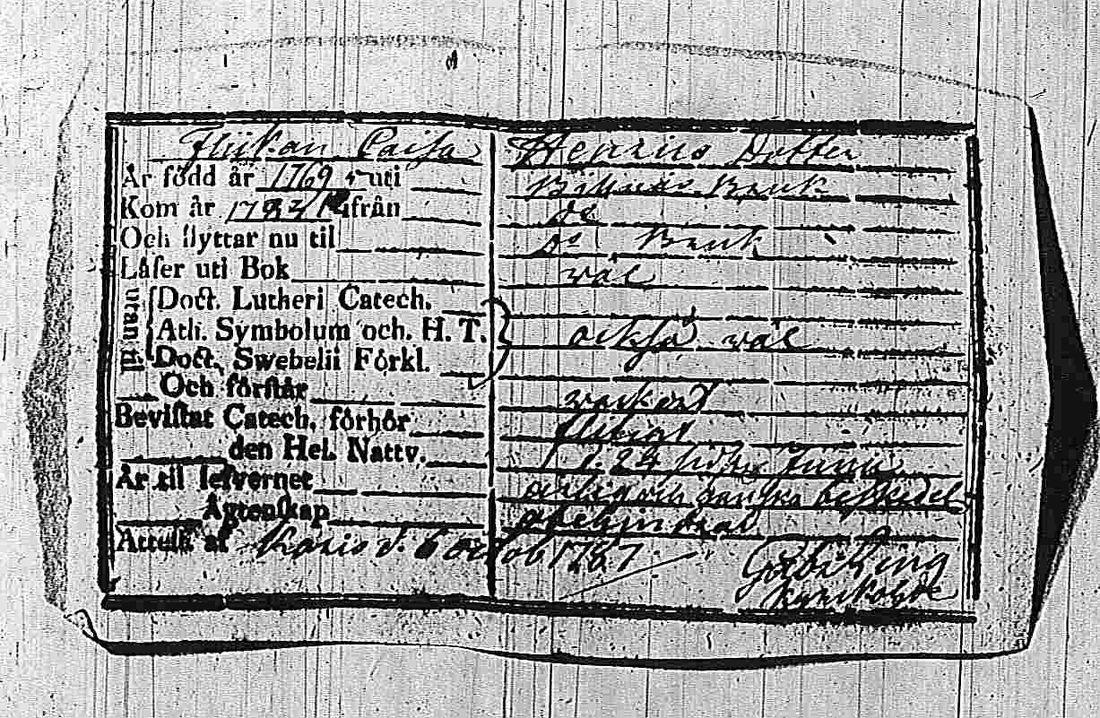 Flickan Caisa Henrics Dotter
År född år 1769 uti Billnäs Bruk
Kom år ifrån de
Och flyttar nu til Bruk
Låser uti Bok väl
utan til
Doct. Lutheri Catech.
Ath. Symbolum och H. T. ocksså väl
Doct. Swebelii Förkl.
Och förstår
Bevistat Catech. förhör flitigt
den Hel. Nattv. d. 24 Junii
År til lefvernet ärlig och ganska beskedel
Ägtenskap obehindrad
Attest. af Karis d. 6 octob 1787